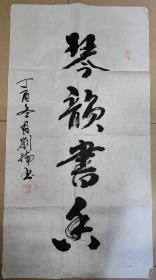 琴韻書香
丁酉冬月劉楠書